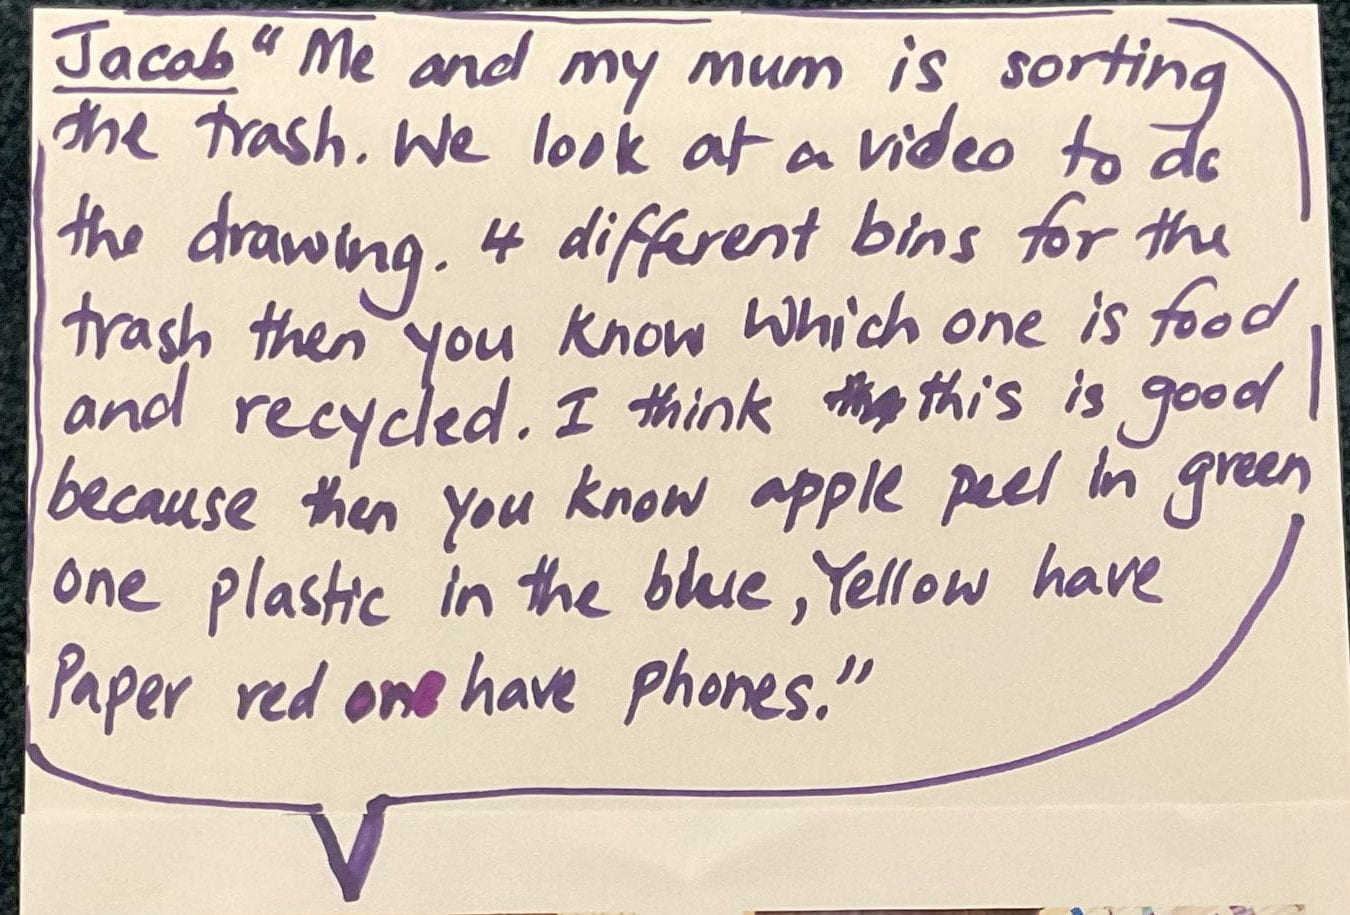 Jacob "Me and my mum is sorting
the trash. We look at a video to do
the drawing. 4 different bins for the
trash then you know which one is food
and recycled. I think this is good
because then you know apple peel in green
one plastic in the blue, Yellow have
Paper red one have phones."